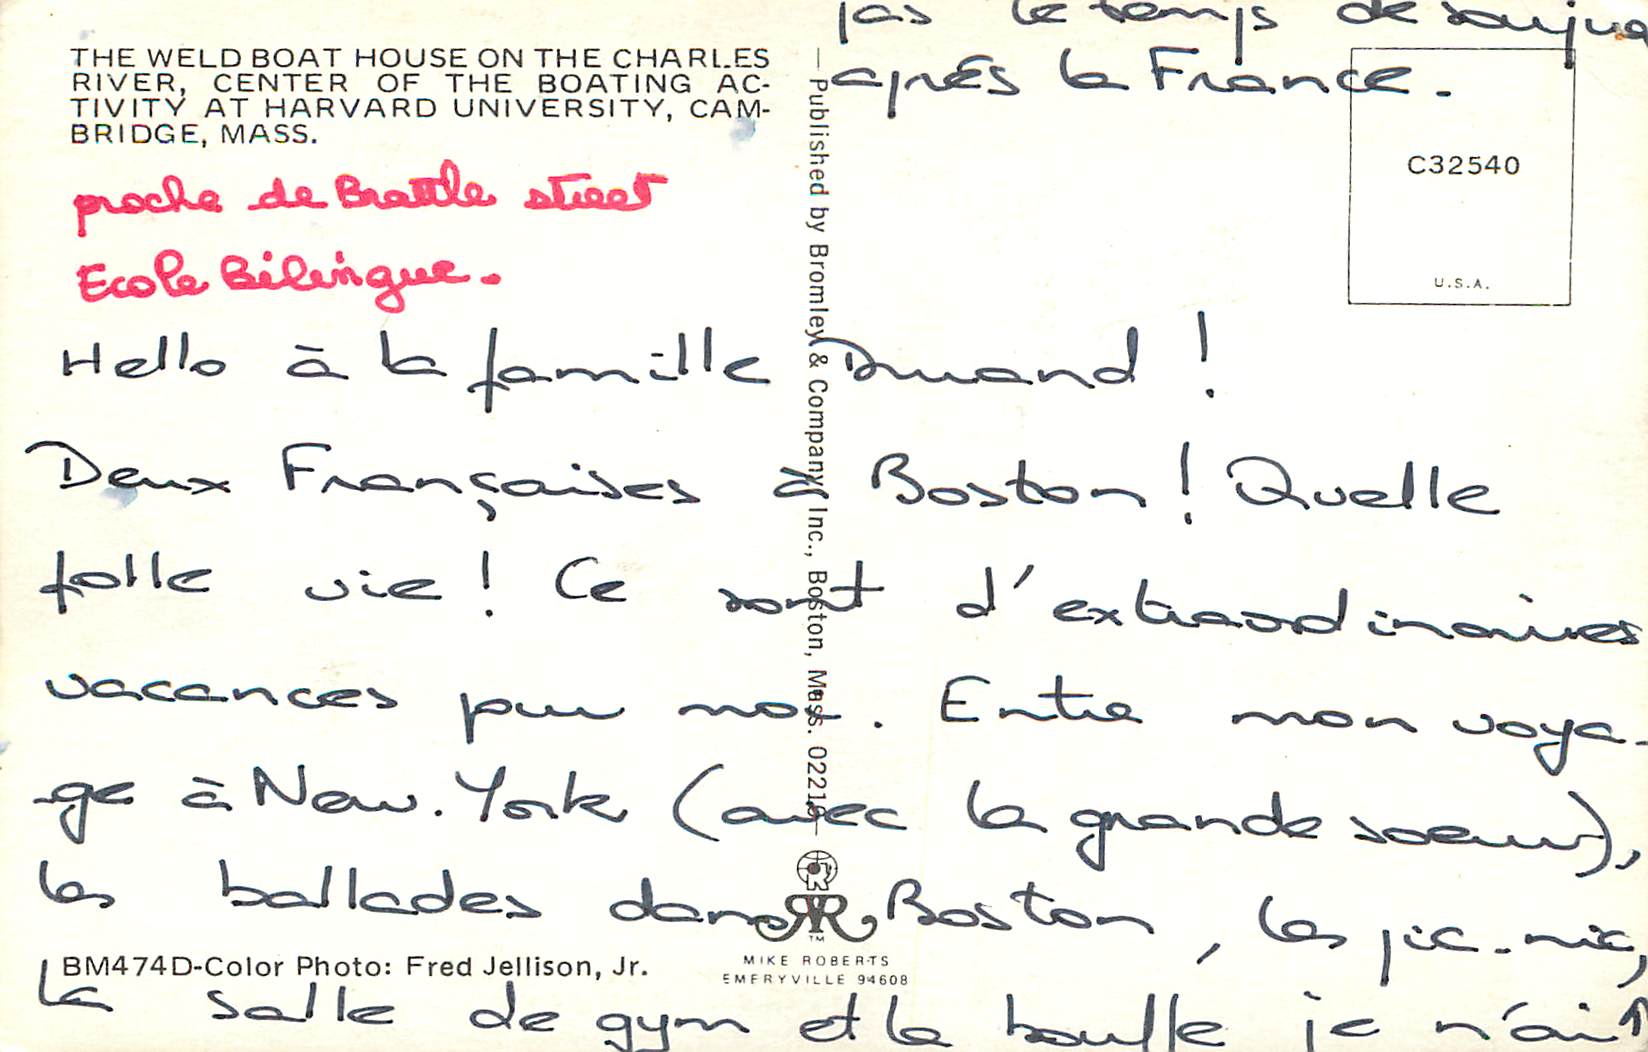 THE WELD BOAT HOUSE ON THE CHARLES
RIVER, CENTER OF THE BOATING AC-
TIVITY AT HARVARD UNIVERSITY, CAM-
BRIDGE, MASS.
proche de Brattle street
Ecole Bilingue.
Hello à la famille Durand !
Deux Françaises à Boston ! Quelle
folle vie ! Ce sont d'extraordinaires
vacances pour nos. Entre mon voya-
-ge à New-York (avec la grande soeur),
les ballades dans Boston, les pic-nic,
la salle de gym et la bouffe je n'ai↑
pas le temps de
après la France.
C32540
U.S.A.
— Published by Bromley & Company, Inc., Boston, Mass. 02210—
MIKE ROBERTS
EMERYVILLE 94608
TM
BM474D-Color Photo: Fred Jellison, Jr.